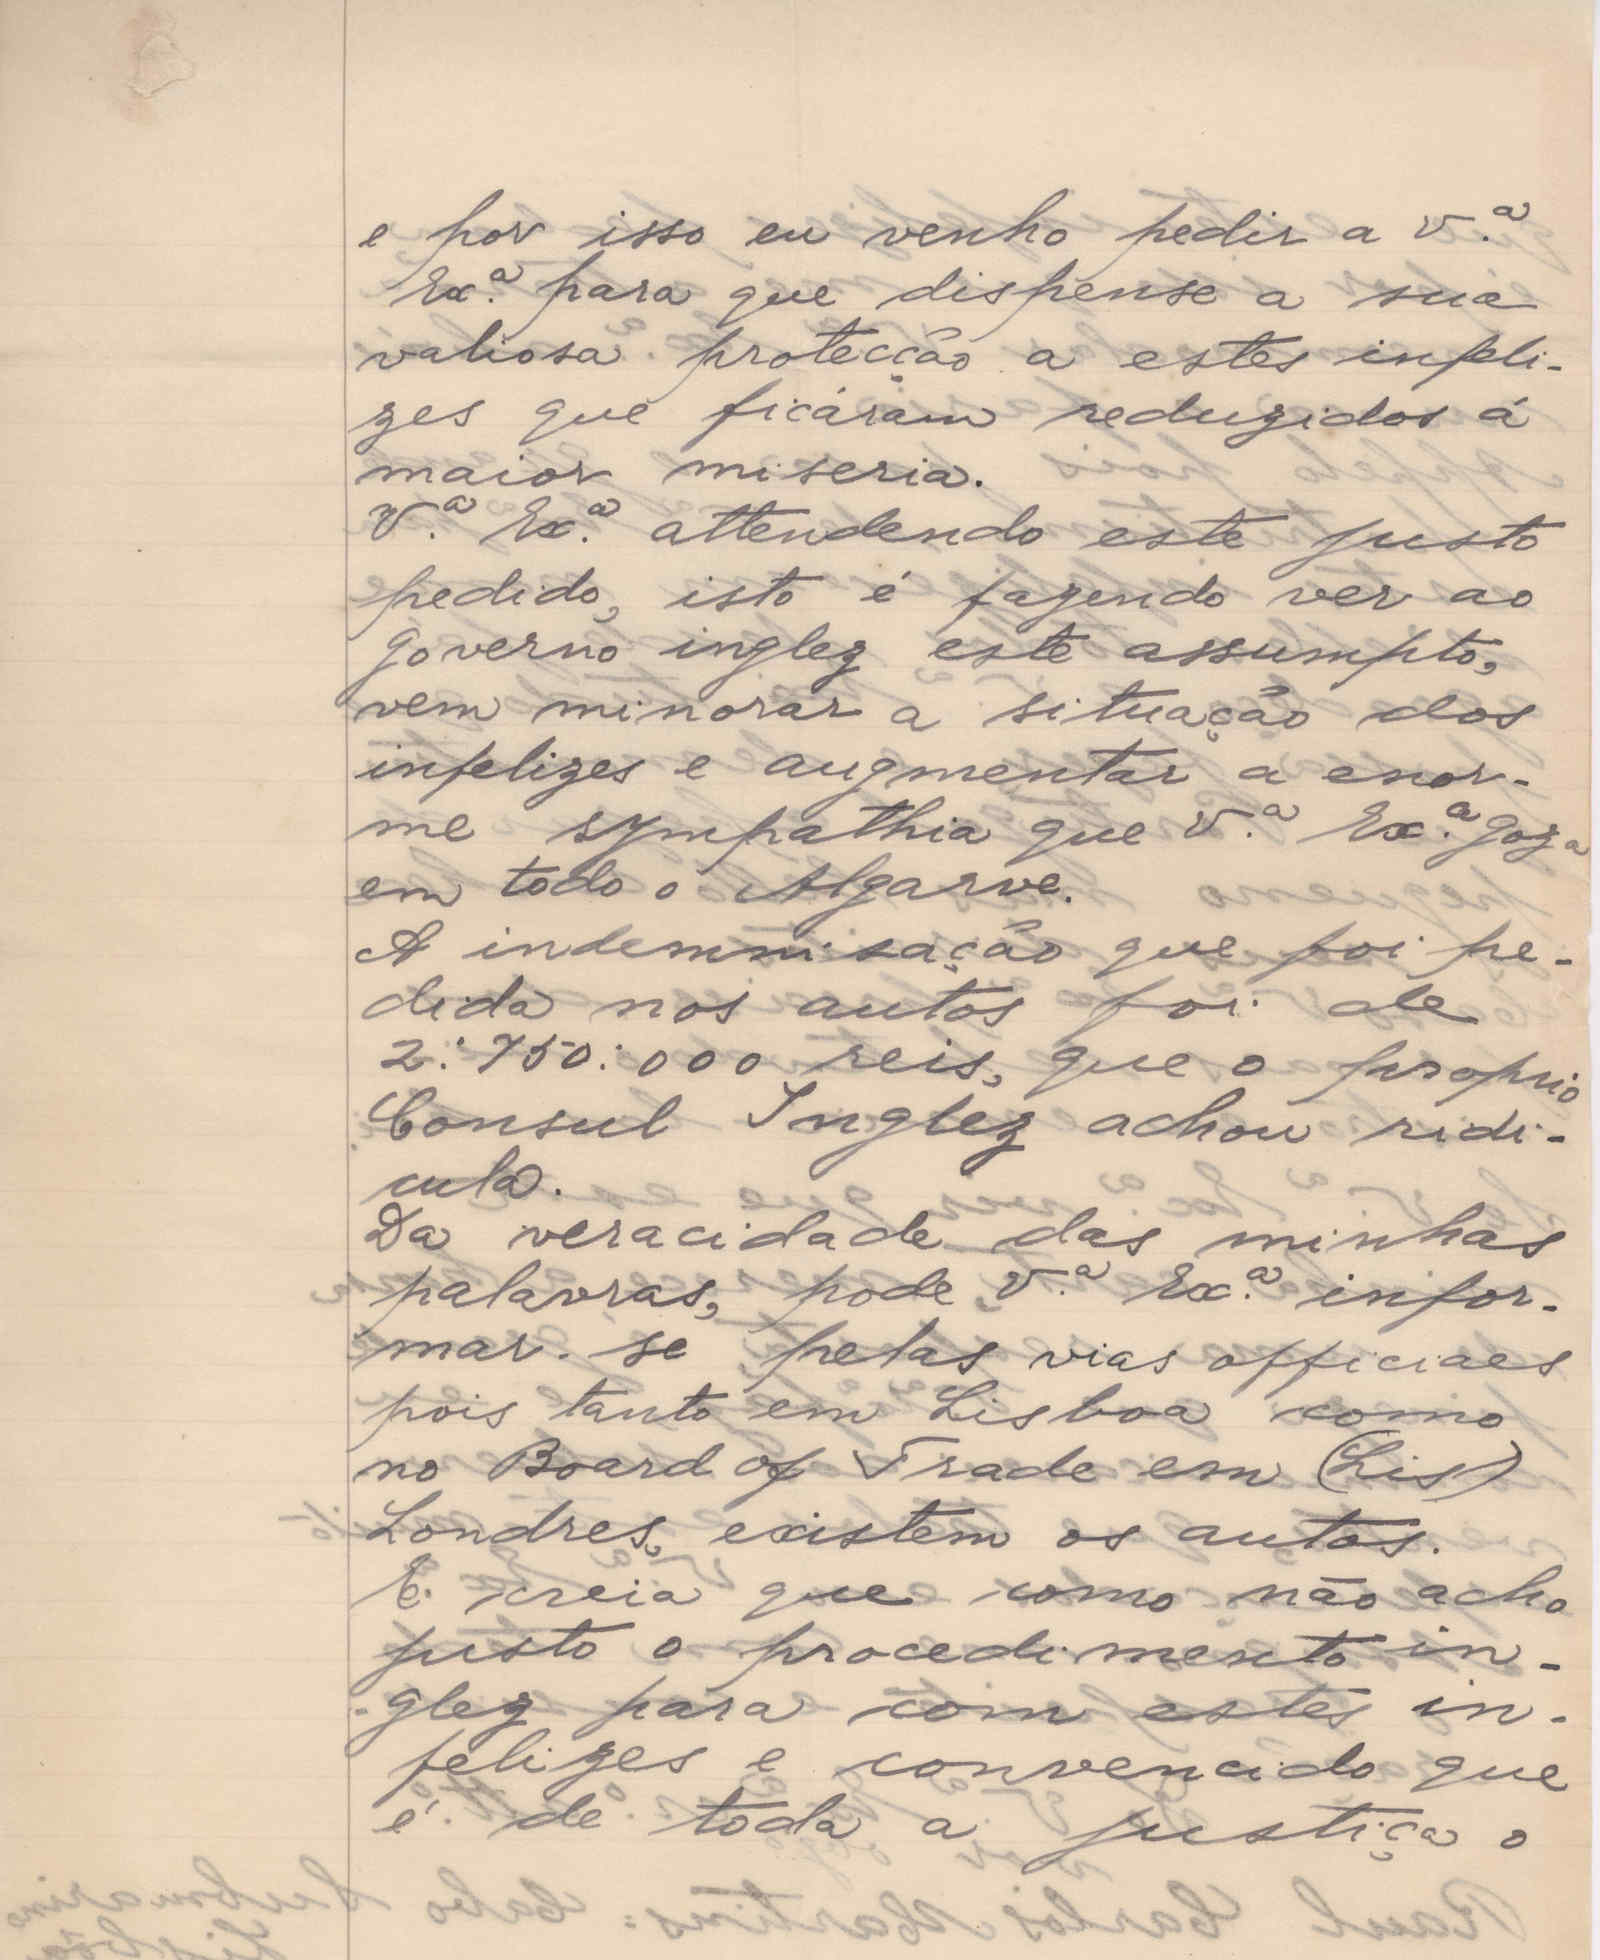 e por isso eu venho pedir a V.ª
Ex.ª para que dispense a sua
valiosa protecção a estes infeli-
zes que ficáram reduzidos á
maior miseria.
V.ª Ex.ª attendendo este justo
pedido, isto é fazendo ver ao
governo inglez este assumpto,
vem minorar a situação dos
infelizes e augmentar a enor-
me sympathia que V.ª Ex.ª goza
em todo o Algarve.
A indemnisação que foi pe-
dida nos autos foi de
2:750:000 reis, que o proprio
Consul Inglez achou ridi-
cula.
Da veracidade das minhas
palavras, pode V.ª Ex.ª infor-
mar-se pelas vias officiaes
pois tanto em Lisboa como
no Board of Trade em (Lis)
Londres, existem os autos.
E creia que como não acho
justo o procedimento in-
-glez para com estes in-
felizes e convencido que
é de toda a justiça o